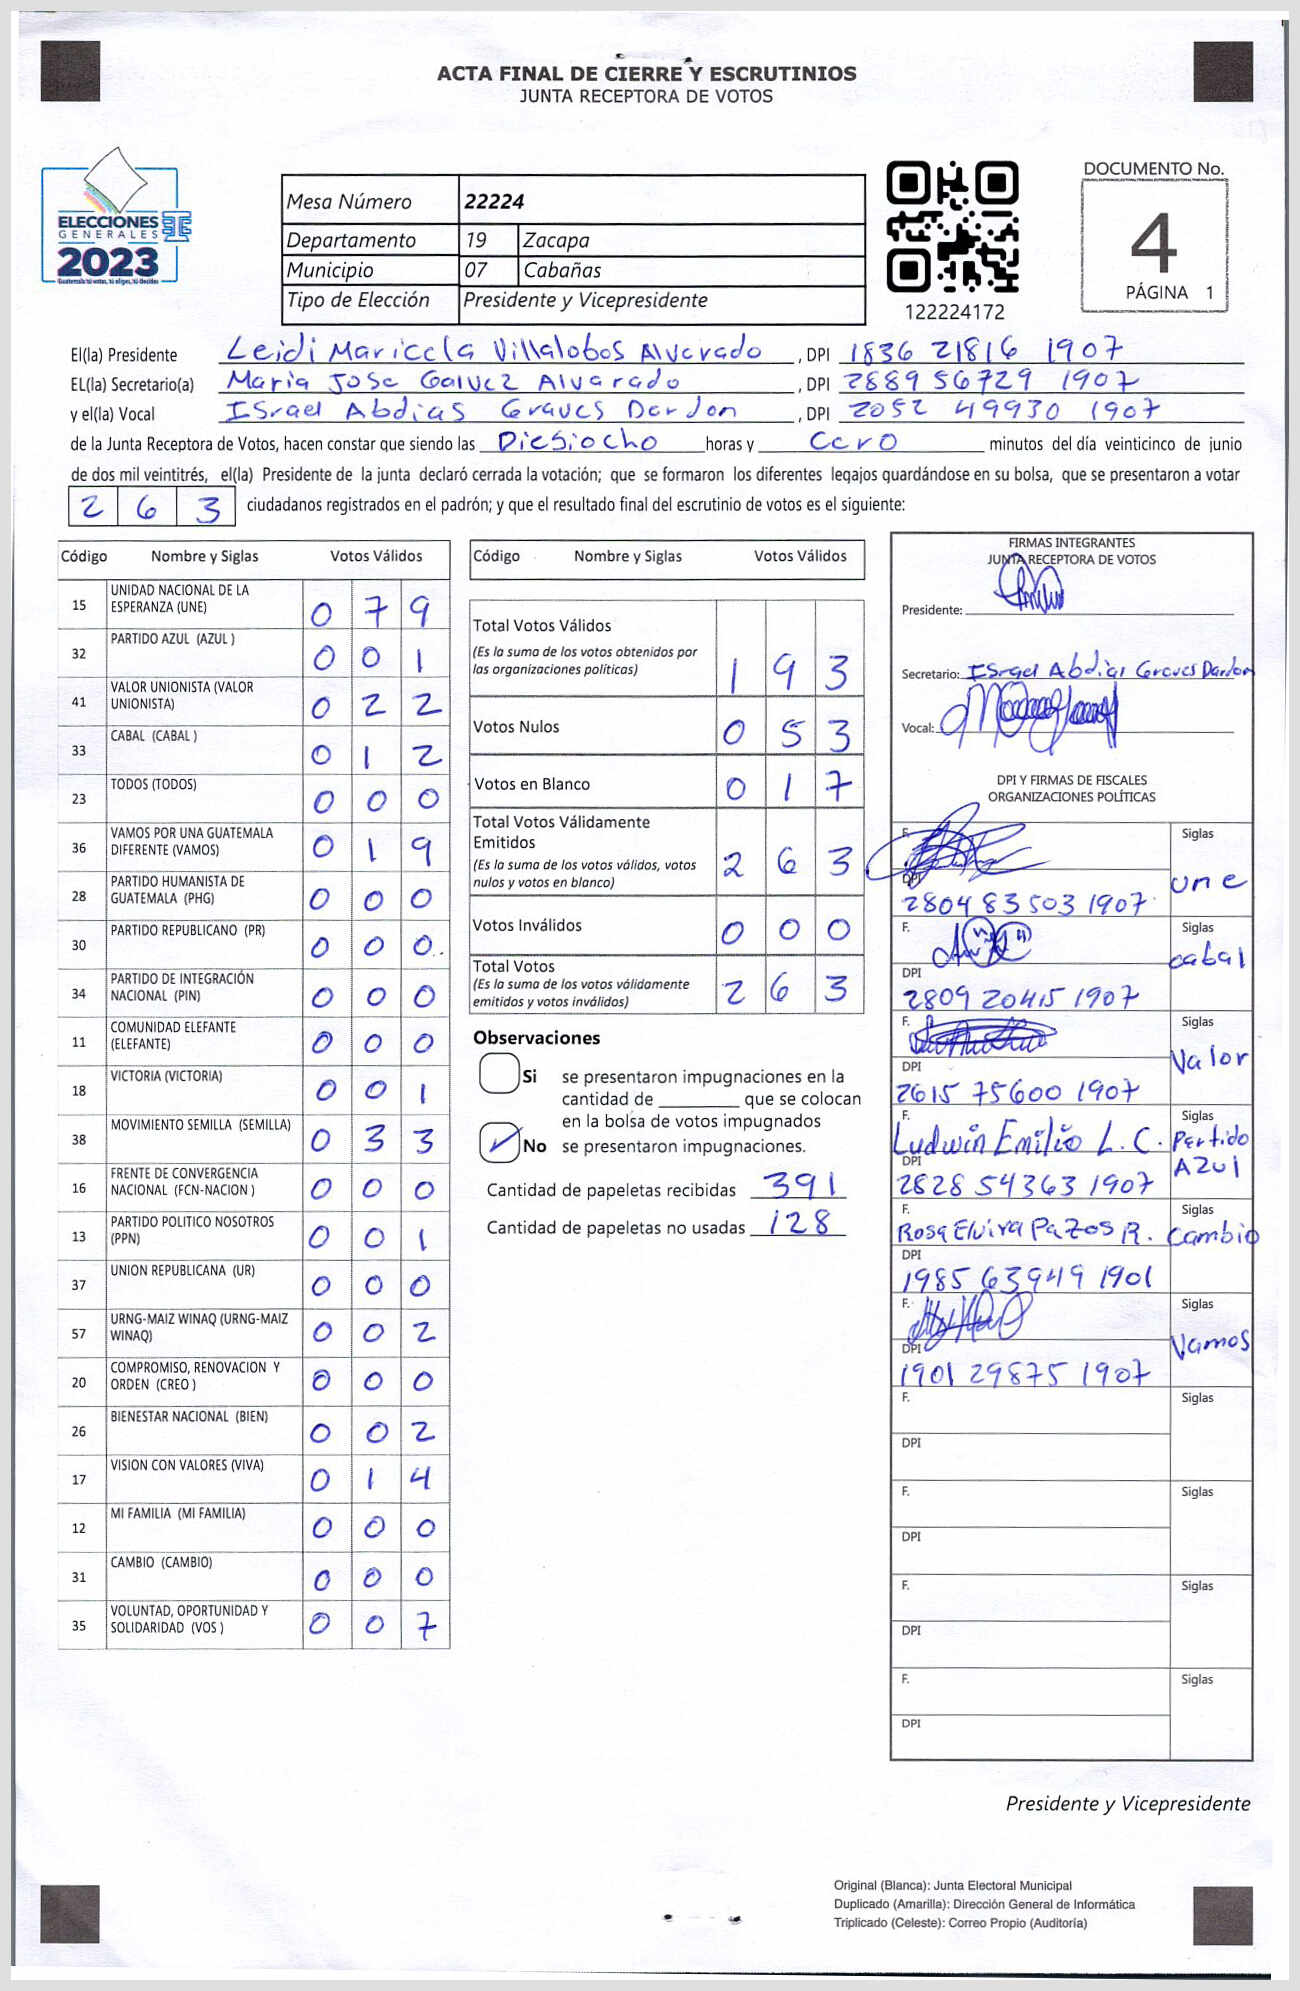 ACTA FINAL DE CIERRE Y ESCRUTINIOS
JUNTA RECEPTORA DE VOTOS
ELECCIONES
GENERALES
2023
Guatemala tú votas, tú eliges, tú decides
Mesa Número 22224
Departamento 19 Zacapa
Municipio 07 Cabañas
Tipo de Elección Presidente y Vicepresidente
122224172
DOCUMENTO No.
4
PÁGINA 1
El(la) Presidente Leidi Maricela Villalobos Alvarado , DPI 1836 21816 1907
EL(la) Secretario(a) Maria Jose Galvez Alvarado , DPI 2889 56729 1907
y el(la) Vocal ISrael Abdias Graves Dardon , DPI 2052 49930 1907
de la Junta Receptora de Votos, hacen constar que siendo las Diesiocho horas y Cero minutos del día veinticinco de junio
de dos mil veintitrés, el(la) Presidente de la junta declaró cerrada la votación; que se formaron los diferentes legajos guardándose en su bolsa, que se presentaron a votar
2 6 3 ciudadanos registrados en el padrón; y que el resultado final del escrutinio de votos es el siguiente:
Código Nombre y Siglas Votos Válidos
15 UNIDAD NACIONAL DE LA ESPERANZA (UNE) 0 7 9
32 PARTIDO AZUL (AZUL ) 0 0 1
41 VALOR UNIONISTA (VALOR UNIONISTA) 0 2 2
33 CABAL (CABAL ) 0 1 2
23 TODOS (TODOS) 0 0 0
36 VAMOS POR UNA GUATEMALA DIFERENTE (VAMOS) 0 1 9
28 PARTIDO HUMANISTA DE GUATEMALA (PHG) 0 0 0
30 PARTIDO REPUBLICANO (PR) 0 0 0
34 PARTIDO DE INTEGRACIÓN NACIONAL (PIN) 0 0 0
11 COMUNIDAD ELEFANTE (ELEFANTE) 0 0 0
18 VICTORIA (VICTORIA) 0 0 1
38 MOVIMIENTO SEMILLA (SEMILLA) 0 3 3
16 FRENTE DE CONVERGENCIA NACIONAL (FCN-NACION ) 0 0 0
13 PARTIDO POLITICO NOSOTROS (PPN) 0 0 1
37 UNION REPUBLICANA (UR) 0 0 0
57 URNG-MAIZ WINAQ (URNG-MAIZ WINAQ) 0 0 2
20 COMPROMISO, RENOVACION Y ORDEN (CREO ) 0 0 0
26 BIENESTAR NACIONAL (BIEN) 0 0 2
17 VISION CON VALORES (VIVA) 0 1 4
12 MI FAMILIA (MI FAMILIA) 0 0 0
31 CAMBIO (CAMBIO) 0 0 0
35 VOLUNTAD, OPORTUNIDAD Y SOLIDARIDAD (VOS ) 0 0 7
Código Nombre y Siglas Votos Válidos
Total Votos Válidos 1 9 3
(Es la suma de los votos obtenidos por
las organizaciones políticas)
Votos Nulos 0 5 3
Votos en Blanco 0 1 7
Total Votos Válidamente
Emitidos 2 6 3
(Es la suma de los votos válidos, votos
nulos y votos en blanco)
Votos Inválidos 0 0 0
Total Votos 2 6 3
(Es la suma de los votos válidamente
emitidos y votos inválidos)
Observaciones
Si se presentaron impugnaciones en la
cantidad de ________ que se colocan
en la bolsa de votos impugnados
No se presentaron impugnaciones.
Cantidad de papeletas recibidas 391
Cantidad de papeletas no usadas 128
FIRMAS INTEGRANTES
JUNTA RECEPTORA DE VOTOS
Presidente:
Secretario: ISrael Abdias Graves Dardon
Vocal:
DPI Y FIRMAS DE FISCALES
ORGANIZACIONES POLÍTICAS
F. Siglas
une
DPI
2804 83503 1907
F. Siglas
cabal
DPI
2809 20415 1907
F. Siglas
Valor
DPI
2615 75600 1907
F. Siglas
Ludwin Emilio L. C. Partido
AZUl
DPI
2828 54363 1907
F. Siglas
Rosa Elvira Pazos R. Cambio
DPI
1985 63949 1901
F. Siglas
Vamos
DPI
1901 29875 1907
F. Siglas
DPI
F. Siglas
DPI
F. Siglas
DPI
F. Siglas
DPI
Presidente y Vicepresidente
Original (Blanca): Junta Electoral Municipal
Duplicado (Amarilla): Dirección General de Informática
Triplicado (Celeste): Correo Propio (Auditoría)